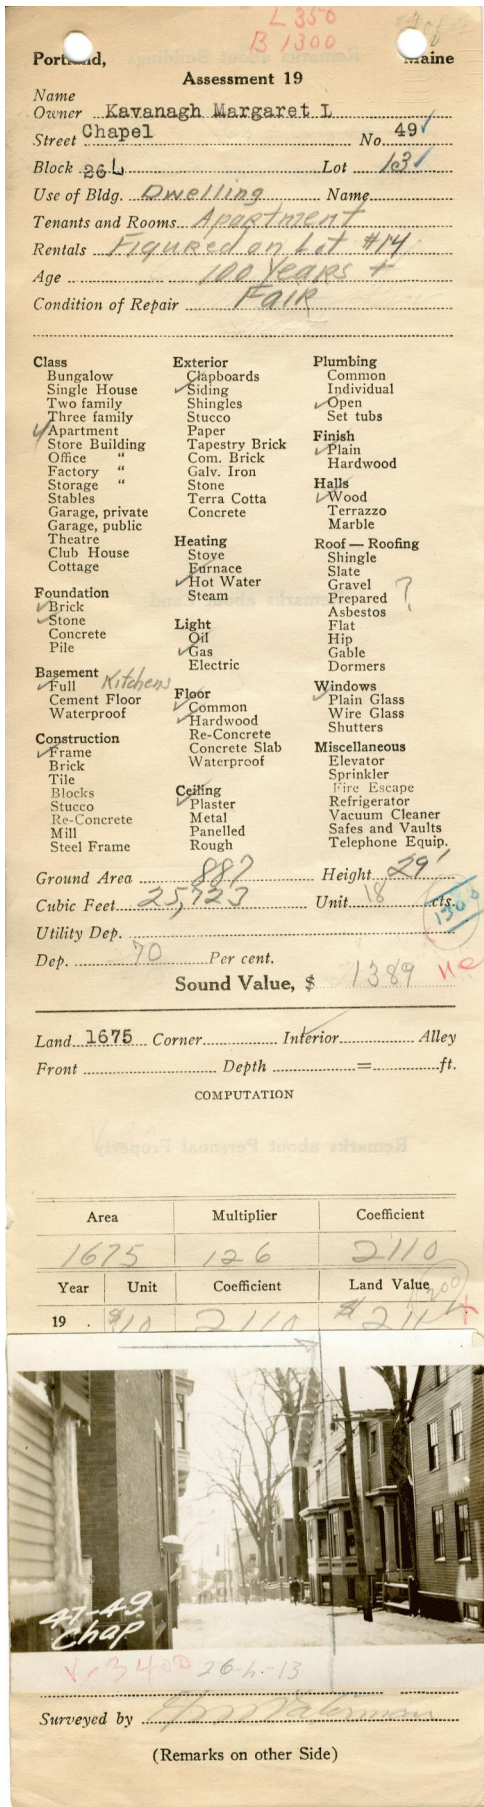 L 350
B 1300
Portland, Maine
Assessment 19
Name
Owner Kavanagh Margaret L
Street Chapel No. 49
Block 26 L Lot 13
Use of Bldg. Dwelling Name
Tenants and Rooms Apartment
Rentals Figured on Lot #14
Age 100 Years +
Condition of Repair Fair
Class
Bungalow
Single House
Two family
Three family
Apartment
Store Building
Office "
Factory "
Storage "
Stables
Garage, private
Garage, public
Theatre
Club House
Cottage
Foundation
Brick
Stone
Concrete
Pile
Basement
Full Kitchens
Cement Floor
Waterproof
Construction
Frame
Brick
Tile
Blocks
Stucco
Re-Concrete
Mill
Steel Frame
Exterior
Clapboards
Siding
Shingles
Stucco
Paper
Tapestry Brick
Com. Brick
Galv. Iron
Stone
Terra Cotta
Concrete
Heating
Stove
Furnace
Hot Water
Steam
Light
Oil
Gas
Electric
Floor
Common
Hardwood
Re-Concrete
Concrete Slab
Waterproof
Ceiling
Plaster
Metal
Panelled
Rough
Plumbing
Common
Individual
Open
Set tubs
Finish
Plain
Hardwood
Halls
Wood
Terrazzo
Marble
Roof — Roofing
Shingle
Slate
Gravel
Prepared ?
Asbestos
Flat
Hip
Gable
Dormers
Windows
Plain Glass
Wire Glass
Shutters
Miscellaneous
Elevator
Sprinkler
Fire Escape
Refrigerator
Vacuum Cleaner
Safes and Vaults
Telephone Equip.
Ground Area 887 Height 29'
Cubic Feet 25,723 Unit 18 cts.
1300
Utility Dep.
Dep. 70 Per cent.
Sound Value, $ 1389
Land 1675 Corner Interior Alley
Front Depth = ft.
COMPUTATION
Area Multiplier Coefficient
1675 126 2110
Year Unit Coefficient Land Value
200
19 . $10 2110 $211
47-49
Chap
3400 26-L-13
Surveyed by
(Remarks on other Side)